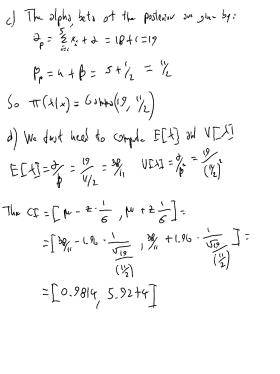 c) The alpha, beta of the posterior are given by:
α_p = Σ_{i=1}^{5} x_i + α = 18 + 1 = 19
β_p = n + β = 5 + 1/2 = 11/2
So π(λ|x) = Gamma(19, 11/2)
d) We just need to compute E[λ] and V[λ]
E[λ] = α/β = 19/(11/2) = 38/11 V[λ] = α/β² = 19/(11/2)²
The CI = [μ - z · 1/6, μ + z 1/6] =
= [38/11 - 1.96 · 1/(√19/(11/2)), 38/11 + 1.96 · 1/(√19/(11/2))] =
= [0.9814, 5.9274]